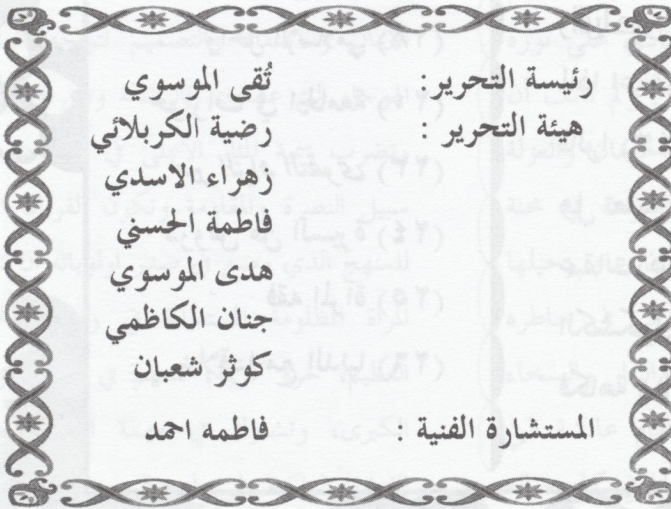 رئيسة التحرير: تُقى الموسوي
هيئة التحرير : رضية الكربلائي
زهراء الاسدي
فاطمة الحسني
هدى الموسوي
جنان الكاظمي
كوثر شعبان
المستشارة الفنية : فاطمه احمد